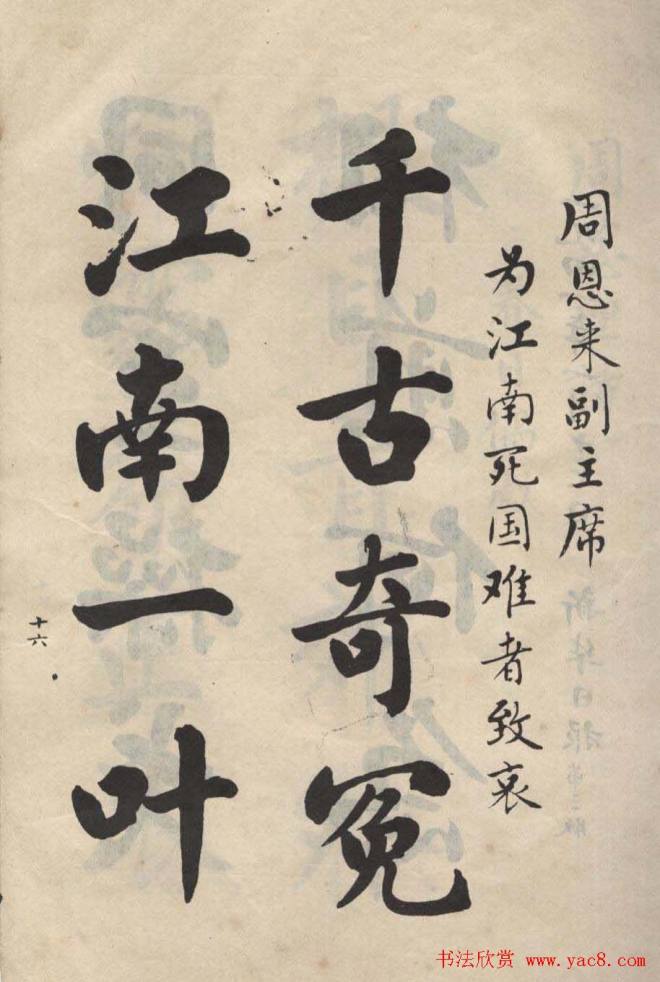 周恩来副主席
为江南死国难者致哀
千古奇冤
江南一叶
十六
新华日报第二版
书法欣赏 www.yac8.com